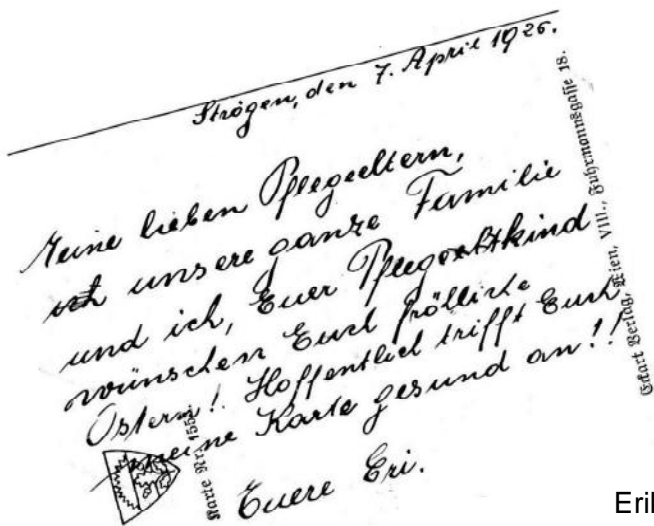 Strögen, den 7. April 1926.
Meine lieben Pflegeeltern,
unsere ganze Familie
und ich, Euer Pflegekind
wünschen Euch fröhliche
Ostern! Hoffentlich trifft Euch
meine Karte gesund an!!
Euere Eri.
Karte Nr. 155
Eckart Verlag, Wien, VIII., Fuhrmannsgasse 18.
Eril